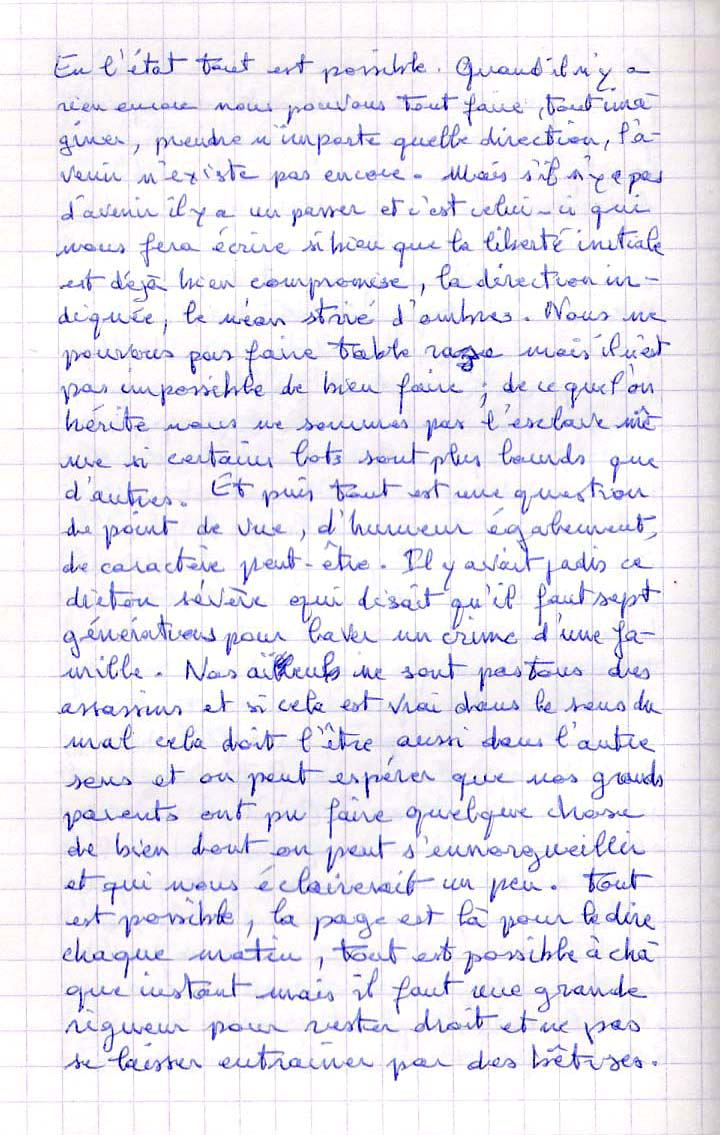 En l'état tout est possible. Quand il n'y a
rien encore nous pouvons tout faire, tout ima
giner, prendre n'importe quelle direction, l'a-
venir n'existe pas encore. Mais s'il n'y a pas
d'avenir il y a un passer et c'est celui-ci qui
nous fera écrire si bien que la liberté initiale
est déjà bien compromise, la direction in-
diquée, le néan strié d'ombres. Nous ne
pouvons pas faire table rase mais il n'est
pas impossible de bien faire ; de ce que l'on
hérite nous ne sommes pas l'esclave mê
me si certains lots sont plus lourds que
d'autres. Et puis tout est une question
de point de vue, d'humeur également,
de caractère peut-être. Il y avait jadis ce
dicton sévère qui disait qu'il faut sept
générations pour laver un crime d'une fa-
mille. Nos aïeuls ne sont pas tous des
assassins et si cela est vrai dans le sens du
mal cela doit l'être aussi dans l'autre
sens et on peut espérer que nos grands
parents ont pu faire quelque chose
de bien dont on peut s'ennorgueillir
et qui nous éclairerait un peu. Tout
est possible, la page est là pour le dire
chaque matin, tout est possible à cha
que instant mais il faut une grande
rigueur pour rester droit et ne pas
se laisser entrainer par des bêtises.